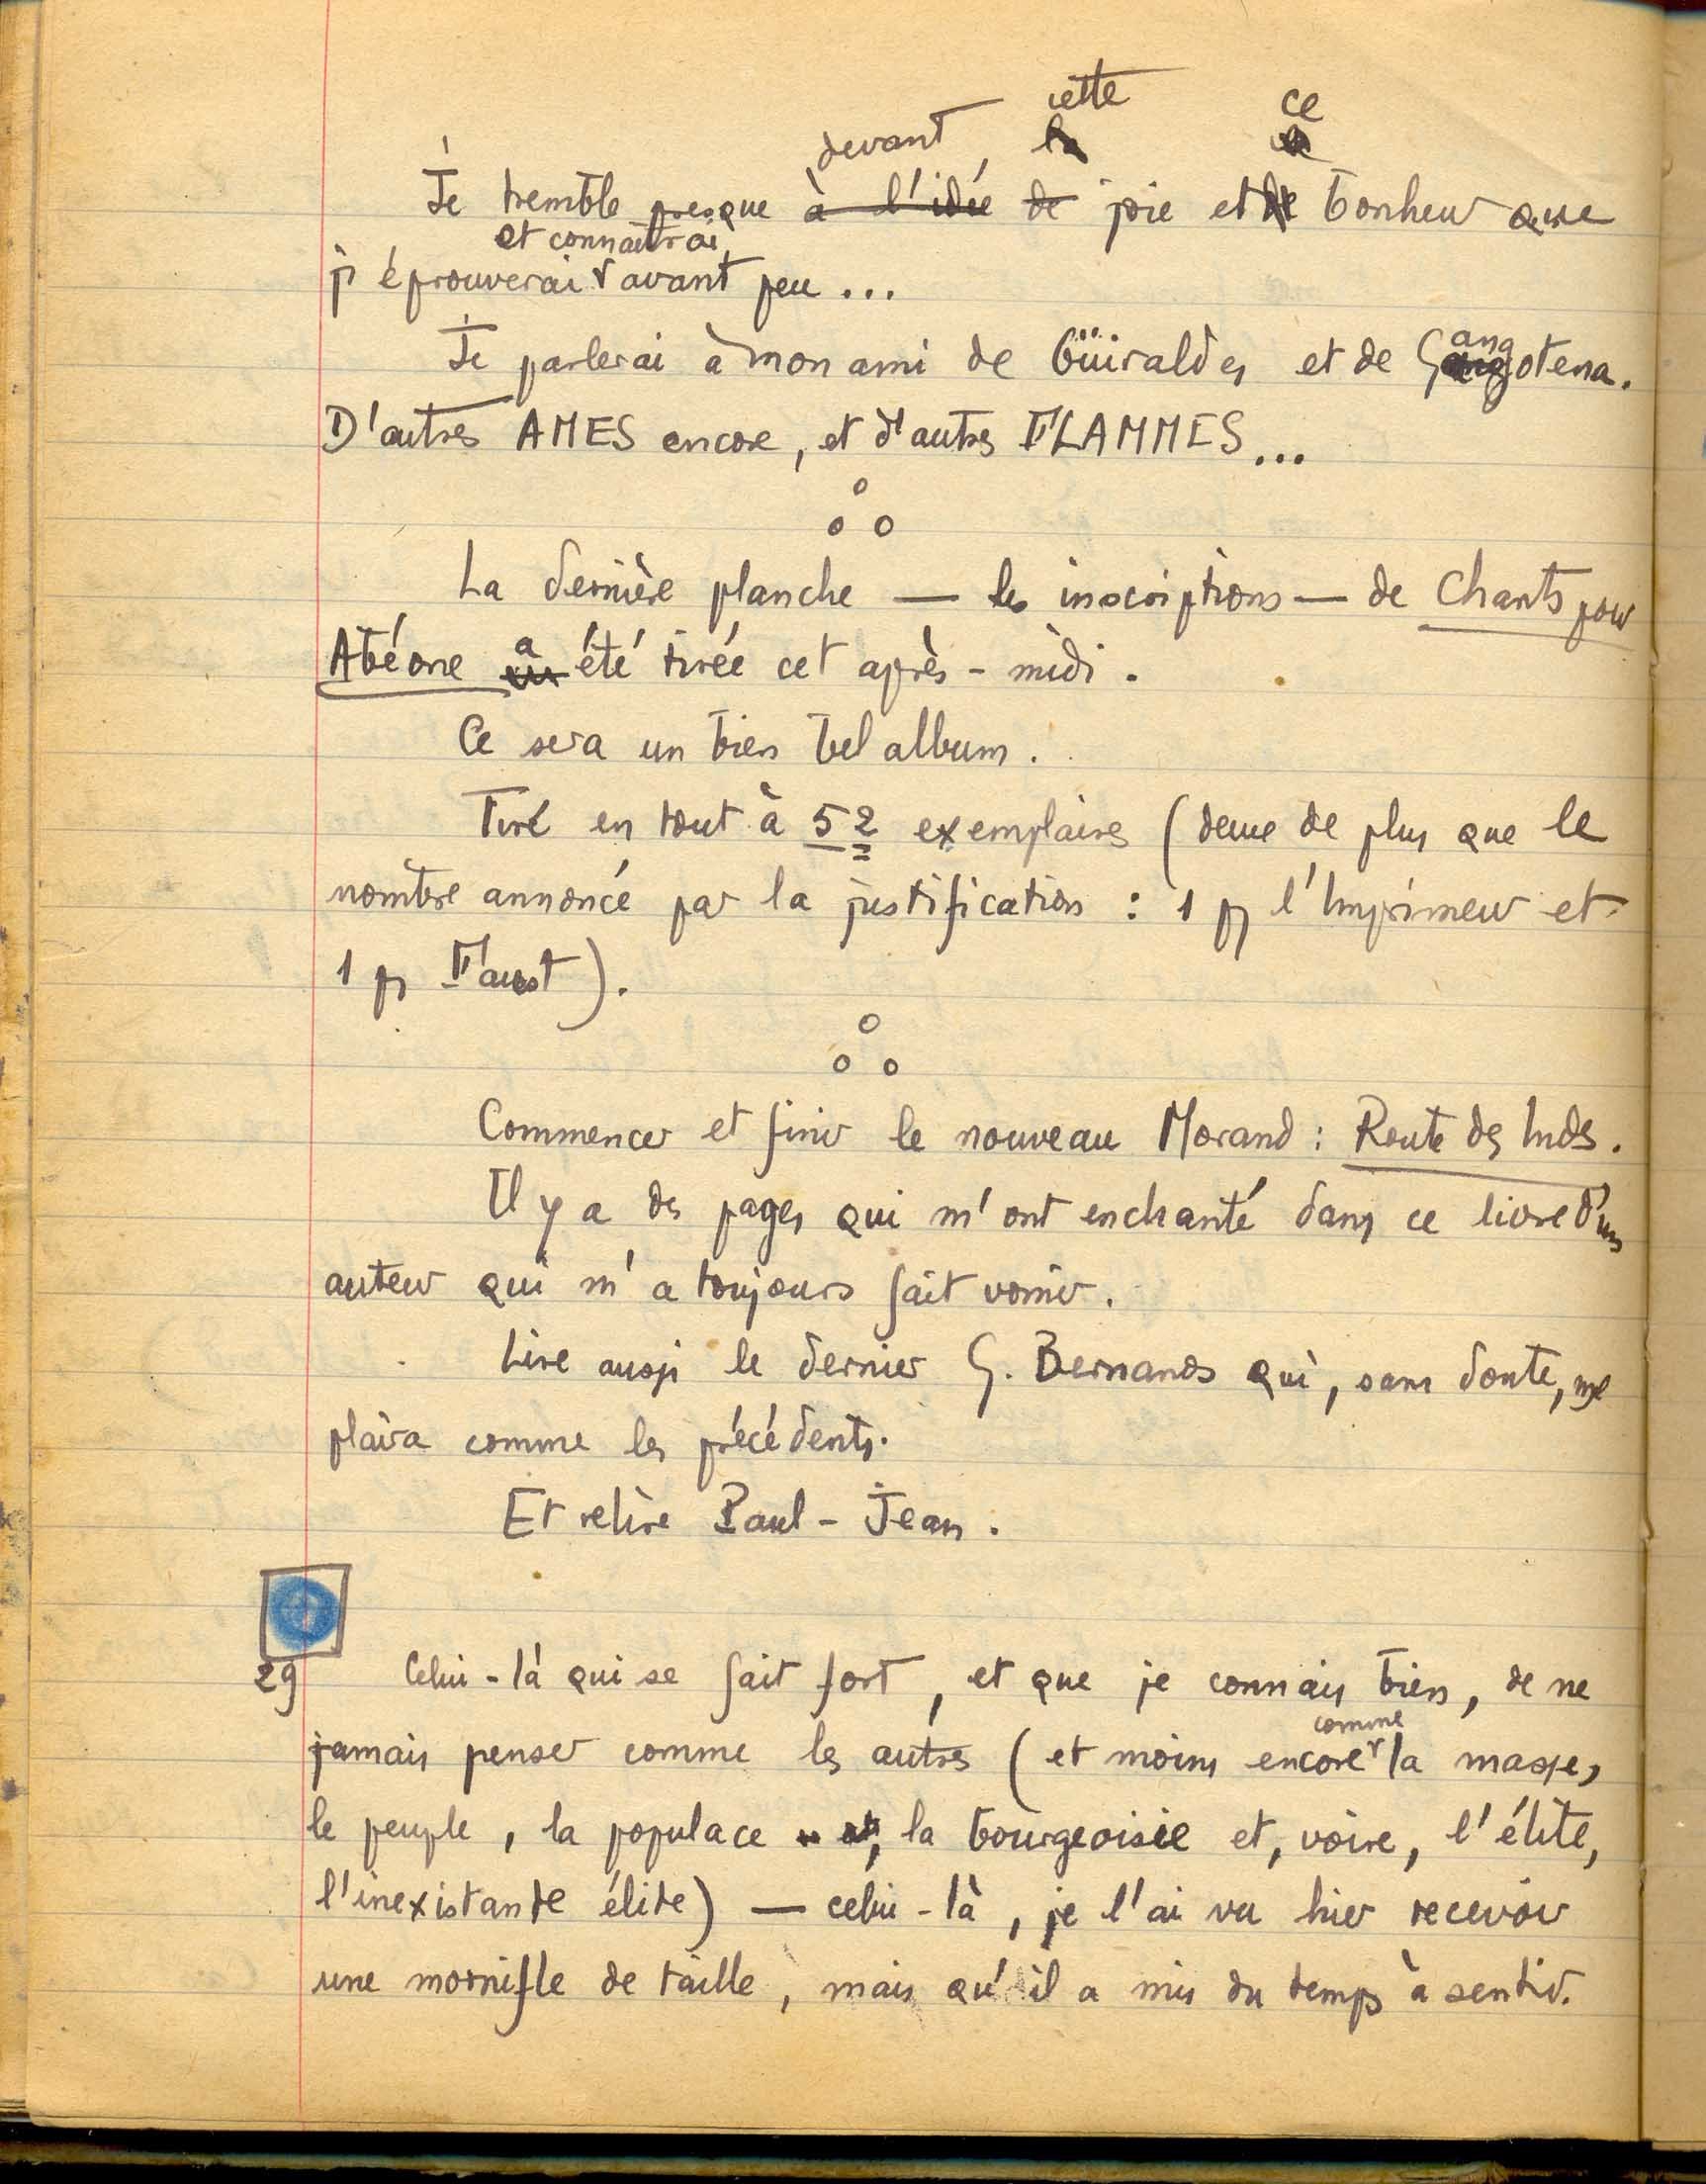 devant cette ce
Je tremble presque à l'idée de joie et de bonheur que
et connaîtrai
j'éprouverai avant peu ...
Je parlerai à mon ami de Güiraldes et de Gangotena.
D'autres AMES encore, et d'autres FLAMMES...
La dernière planche — les inscriptions — de Chants pour
Abéone a été tirée cet après-midi.
Ce sera un bien bel album.
Tiré en tout à 52 exemplaires (deux de plus que le
nombre annoncé par la justification : 1 pr l'Imprimeur et
1 pr Faust).
Commencer et finir le nouveau Morand : Route des Indes.
Il y a des pages qui m'ont enchanté dans ce livre d'un
auteur qui m'a toujours fait vomir.
Lire aussi le dernier G. Bernanos qui, sans doute, me
plaira comme les précédents.
Et relire Paul-Jean.
29 Celui-là qui se fait fort, et que je connais bien, de ne
comme
jamais penser comme les autres (et moins encore la masse,
le peuple, la populace, la bourgeoisie et, voire, l'élite,
l'inexistante élite) — celui-là, je l'ai vu hier recevoir
une mornifle de taille, mais qu'il a mis du temps à sentir.